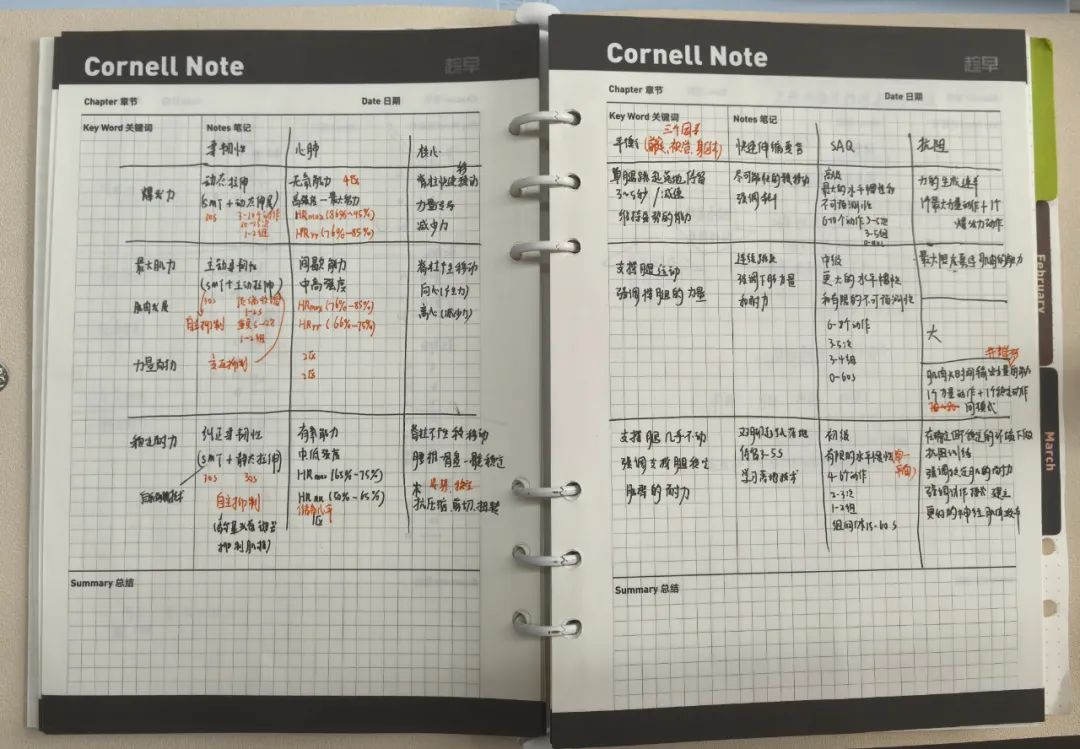 Cornell Note
趁早
Chapter 章节
Date 日期
Key Word 关键词
Notes 笔记
柔韧性
心肺
核心
爆发力
动态拉伸
(SMT + 动态伸展)
10s
3-10个动作
10-15次
1-2组
无氧能力 4区
高强度-最大努力
HRmax (86%~95%)
HRrr (76%-85%)
脊柱快速移动
转
力量
减少力
最大肌力
肌肉发展
力量耐力
主动柔韧性
(SMT + 主动拉伸)
30s
1-2s
重复5-10次
1-2组
自主抑制
交互抑制
间歇能力
中高强度
HRmax (76%-85%)
HRrr (66%-75%)
2区
2区
脊柱产生移动
向心 (产生力)
离心 (减少力)
稳定耐力
纠正柔韧性
(SMT + 静态拉伸)
30s
30s
自主抑制
抑制肌梭)
有氧能力
中低强度
HRmax (65%-75%)
HRRR (50%-65%)
1区
脊柱不产生移动
腰椎-骨盆-髋稳定
抗压缩、剪切、扭转
Summary 总结
Cornell Note
趁早
Chapter 章节
Date 日期
Key Word 关键词
Notes 笔记
平衡
三个因素
(前庭、视觉、身体)
快速伸缩复合
SAQ
抗阻
单腿跳起落地，停留
3~5秒 / 减速
维持姿势的能力
尽可能快的转移动
强调
高级
最大的水平惯性和
不可预测性
6-10个动作 3-5次
3-5组
力的生成速率
1个最大力量动作+1个
爆发力动作
支撑腿运动
强调撑腿的力量
连续跳跃
强调下肢力量
和耐力
中级
更大的水平惯性
和有限的不可预测性
6-8个动作
3-5次
3-4组
0-60s
最大限度募集肌肉的能力
大
肌肉长时间输出力量的能力
1个力量动作+1个稳定动作
同模式
支撑腿几乎不动
强调支撑腿稳定
肌群的耐力
双脚起跳落地
停留3-5s
学习落地技术
初级
有限的水平惯性
4-6个动作
2-3次
1-2组
组间休15-60s
在稳定但不稳定的环境下做
抗阻训练
强调稳定肌肉的耐力
强调动作模式建立
更好的神经肌肉效率
Summary 总结
February
March